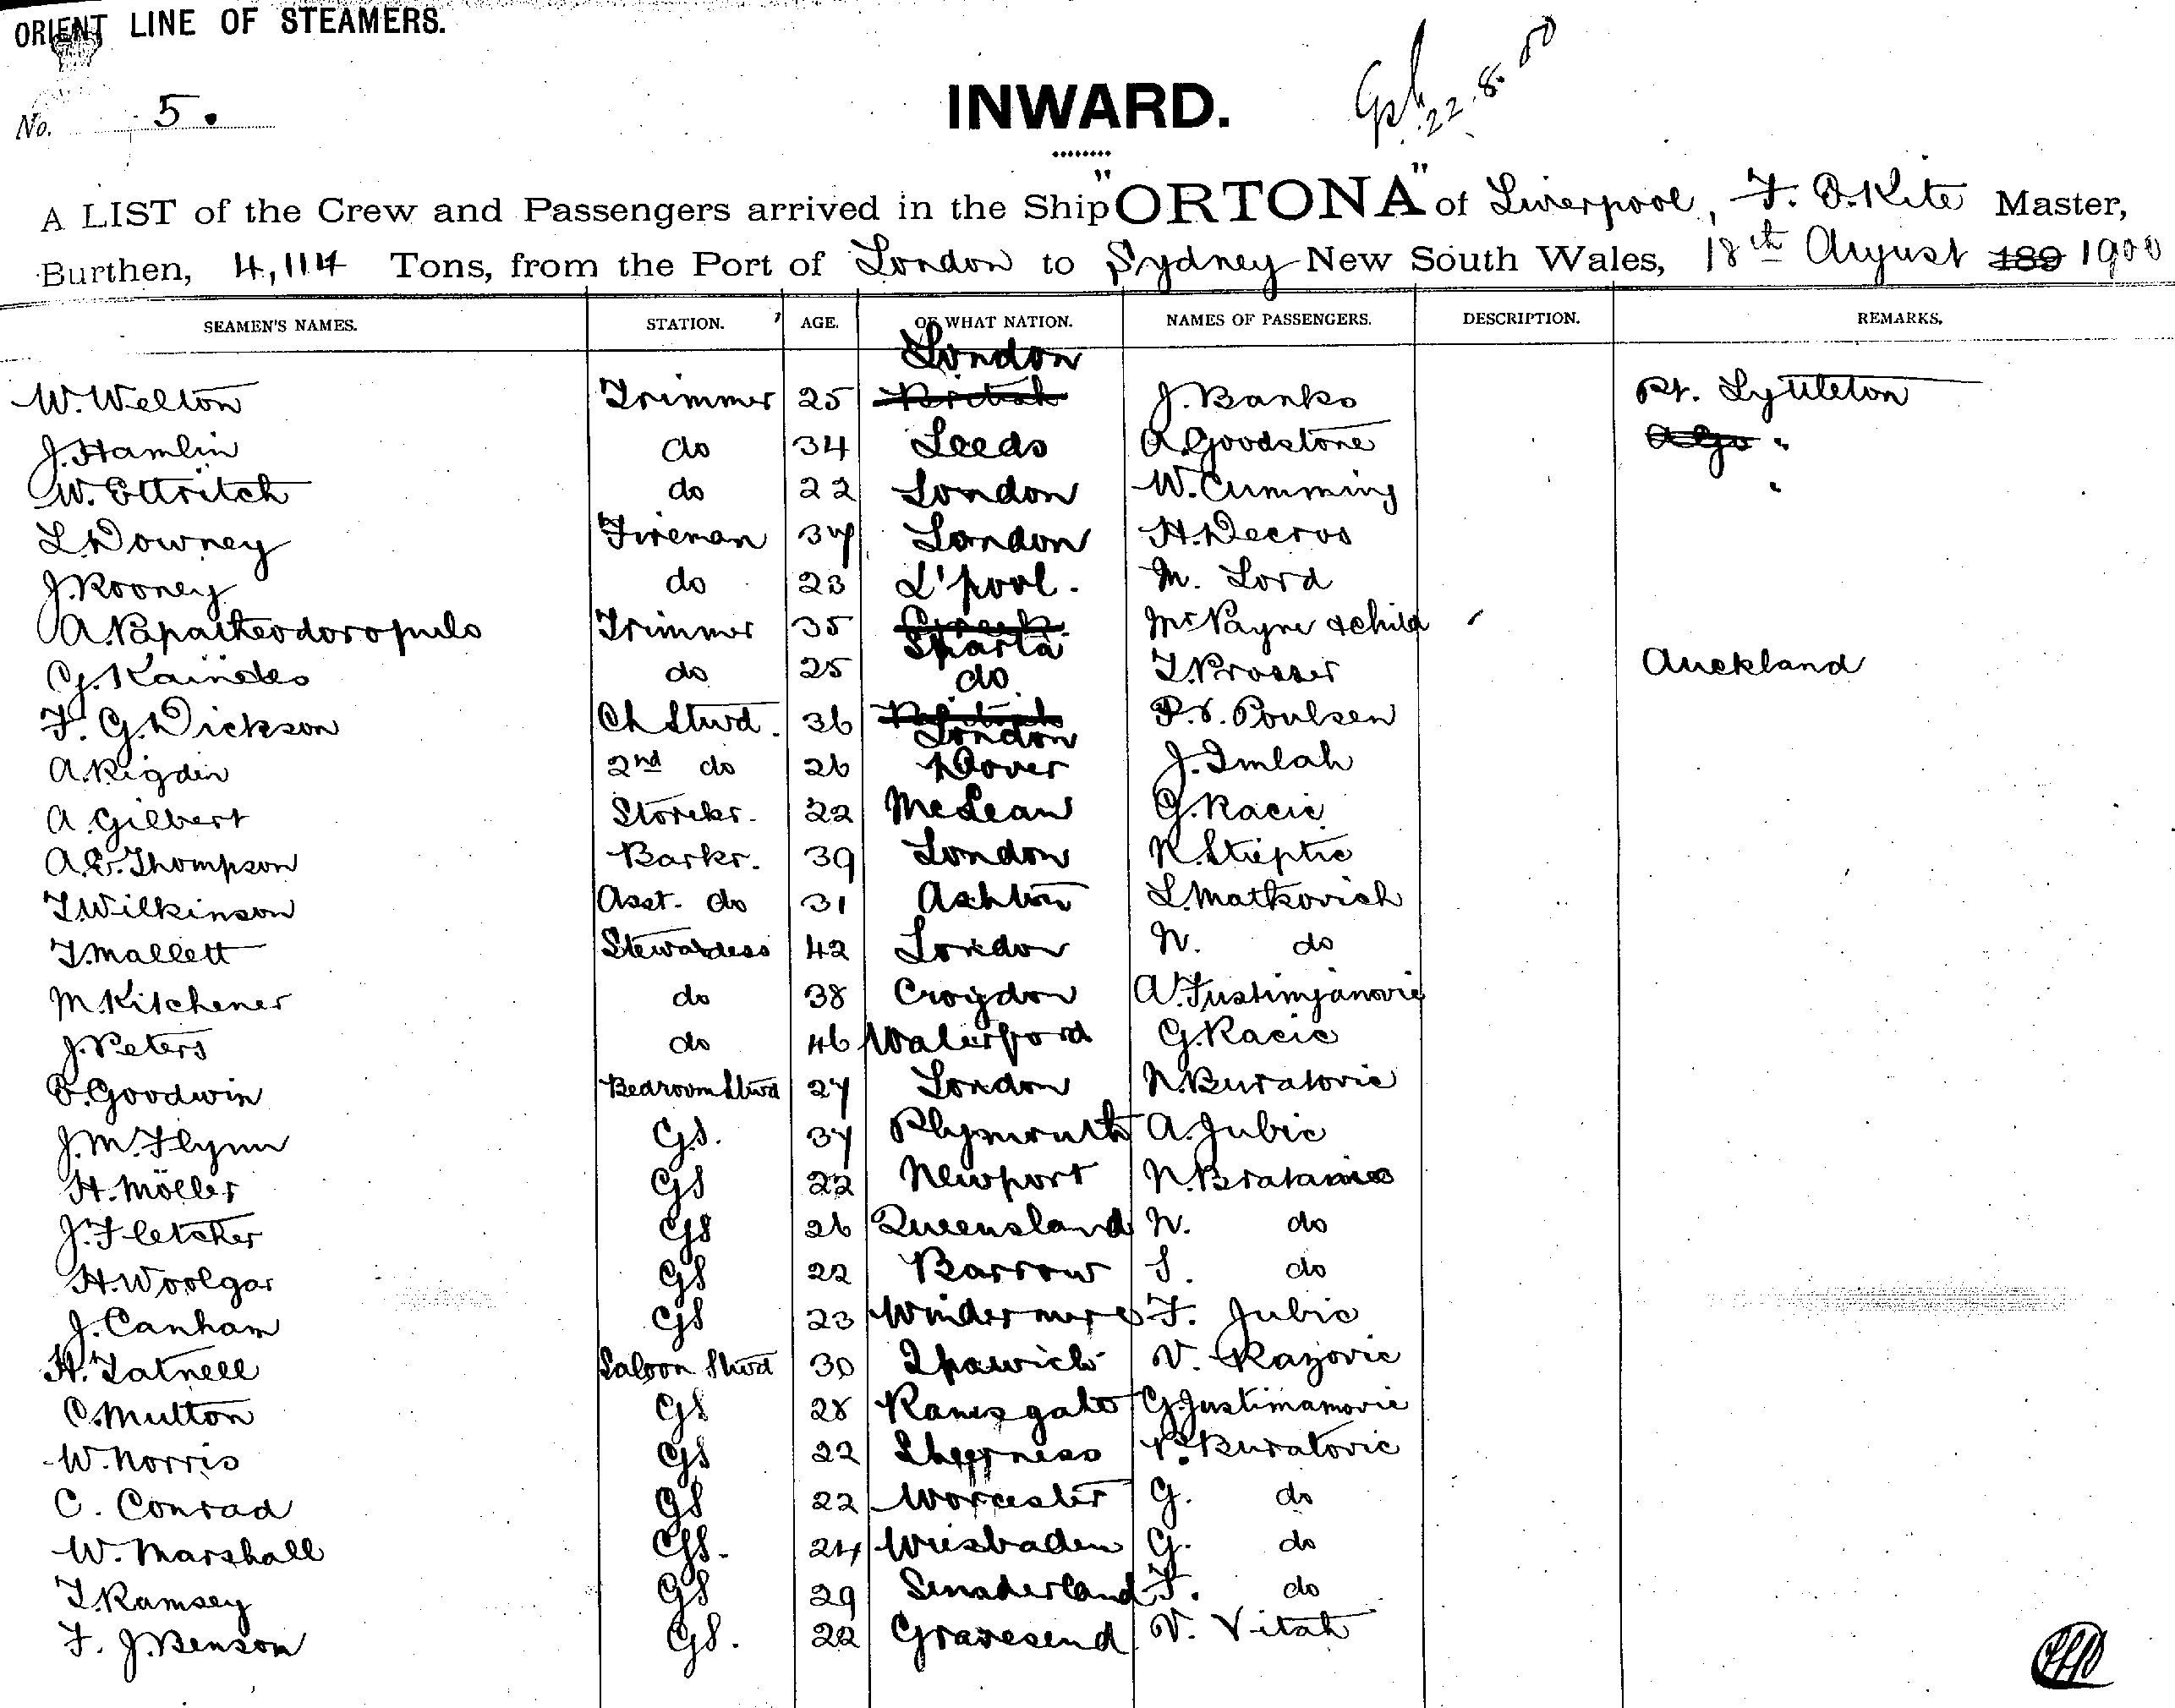 ORIENT LINE OF STEAMERS.
No. 5.
INWARD.
22.8.00
A LIST of the Crew and Passengers arrived in the Ship "ORTONA" of Liverpool, F. O. Kite Master,
Burthen, 4,114 Tons, from the Port of London to Sydney New South Wales, 18th August 189 1900
SEAMEN'S NAMES. STATION. AGE. OF WHAT NATION. NAMES OF PASSENGERS. DESCRIPTION. REMARKS.
London
W. Welton Trimmer 25 British J. Banks Pt. Lyttleton
J. Hamlin do 34 Leeds A. Goodstone "
W. Ettritch do 22 London W. Cumming "
L. Downey Fireman 37 London H. Decros
J. Rooney do 23 L'pool. M. Lord
A. Papatheodoropulo Trimmer 35 Greek Mrs Payne & child
Sparta
G. Kaindes do 25 do T. Prosser Auckland
F. G. Dickson Ch Stwd. 36 British P. S. Poulsen
London
A. Rigden 2nd do 26 Dover J. Imlah
A. Gilbert Storekr. 22 McLean G. Racic
A. E. Thompson Barkr. 39 London N. Stieptic
T. Wilkinson Asst. do 31 Ashton L. Matkovich
T. Mallett Stewardess 42 London N. do
M. Kitchener do 38 Croydon A. Justimjanovic
J. Peters do 46 Waterford G. Racic
E. Goodwin Bedroom Stwd 27 London N. Buratovic
J. M. Flynn GS. 37 Plymouth A. Jubic
H. Möller GS 22 Newport N.
J. Fletcher GS 26 Queensland N. do
H. Woolgar GS 22 Barrow S. do
J. Canham GS 23 Windermere F. Jubic
H. Tatnell Saloon Stwd 30 Ipswich V. Razovic
C. Multon GS 28 Ramsgate G. Justimamovic
W. Norris GS 22 Sheerness P. Buratovic
C. Conrad GS 22 Worcester G. do
W. Marshall GS. 24 Wiesbaden G. do
T. Ramsey GS 29 Sunderland F. do
F. J. Benson GS. 22 Gravesend V. Vitah